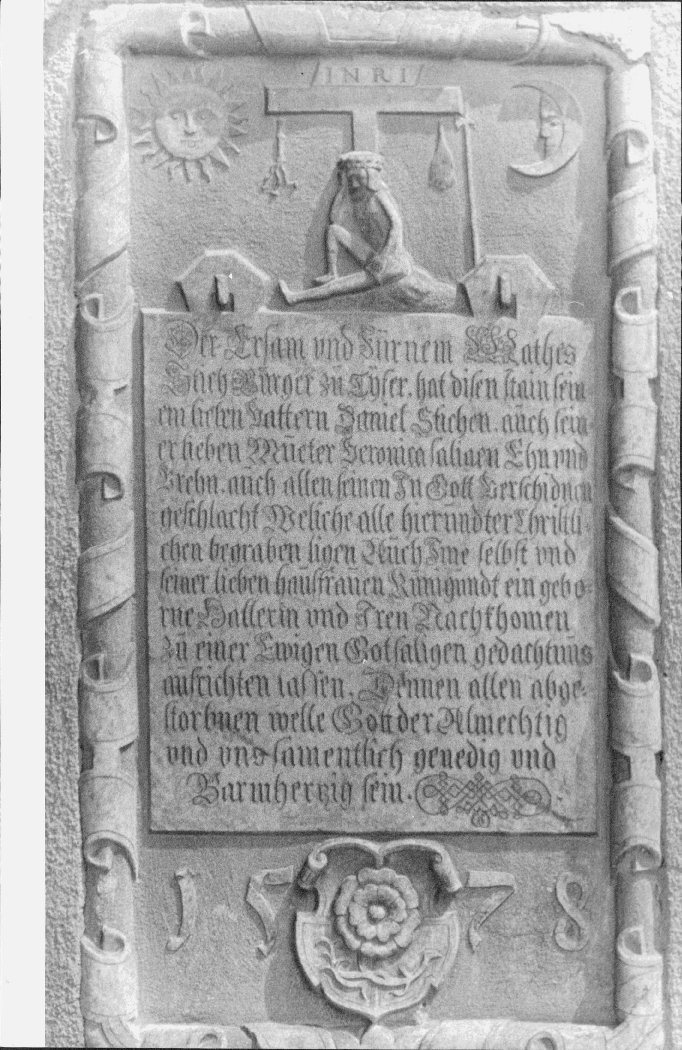 INRI
Der Ersam vnd Fürnem Mathes
Stich Bürger zu Tyser. hat disen stain sein-
em lieben Vattern Daniel Stichen. auch sein-
er lieben Mueter Veronica saligen Ehn vnd
Vrehn. auch allen seinen In Gott Verschidnen
geschlacht Weliche alle hierundter Christli-
chen begraben ligen Auch Ime selbst vnd
seiner lieben hausfrauen Künigundt ein gebo-
rne Hallerin vnd Iren Nachkhomen
zu einer Ewigen Gotsaligen gedachtnus
aufrichten lassen. Dennen allen abge-
storbnen welle Gott der Almechtig
vnd vns samentlich genedig vnd
Barmhertzig sein.
1578